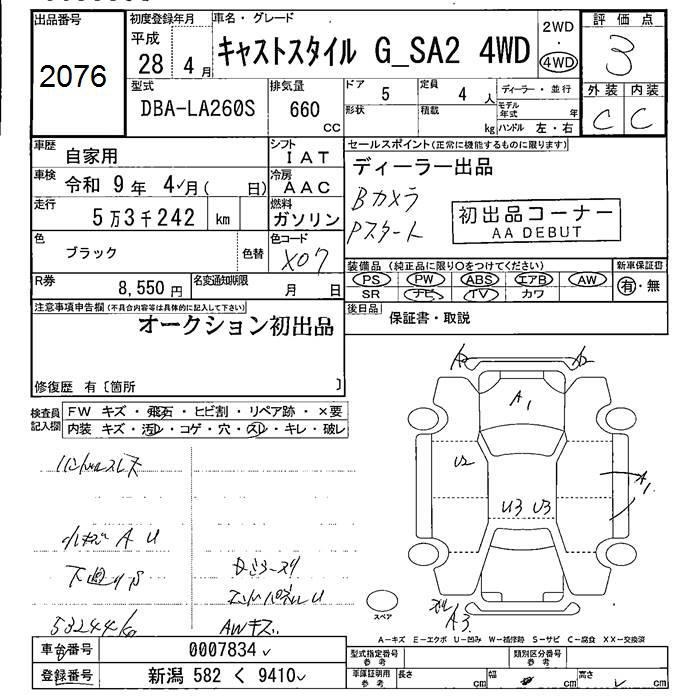 出品番号
2076
初度登録年月
平成
28年 4月
車名・グレード
キャストスタイル G_SA2 4WD
2WD
・
4WD
評価点
3
型式
DBA-LA260S
排気量
660
cc
ドア 5
定員 4 人
形状
積載
kg
ディーラー・並行
モデル年式 年
ハンドル 左・右
外装 内装
C C
車歴 自家用
シフト IAT
車検 令和 9年 4月( 日)
冷房 AAC
走行 5万3千242 km
燃料 ガソリン
色 ブラック
色替
色コード X07
R券 8,550円
名変通知期限 月 日
セールスポイント(正常に機能するものに限ります)
ディーラー出品
Bカメラ
Pスタート
初出品コーナー
AA DEBUT
装備品(純正品に限り○をつけてください)
PS PW ABS エアB AW
SR ナビ TV カワ
新車保証書
有・無
後日品 保証書・取説
注意事項申告欄(不具合内容等は具体的に記入して下さい)
オークション初出品
修復歴 有〔箇所 〕
検査員記入欄
FW キズ・飛石・ヒビ割・リペア跡・×要
内装 キズ・汚レ・コゲ・穴・スレ・キレ・破レ
ハンドルスレ
小キズ A U
下廻りS
エンドパネルU
53244k
AWキズ
A2 A2
A1
U2
U3 U3
A1
A3
スペア
A－キズ E－エクボ U－凹み W－補修跡 S－サビ C－腐食 XX－交換済
車台番号 0007834
登録番号 新潟 582 く 9410
型式指定番号 参考
類別区分番号 参考
車庫証明用 参考
長さ cm
幅 cm
高さ cm